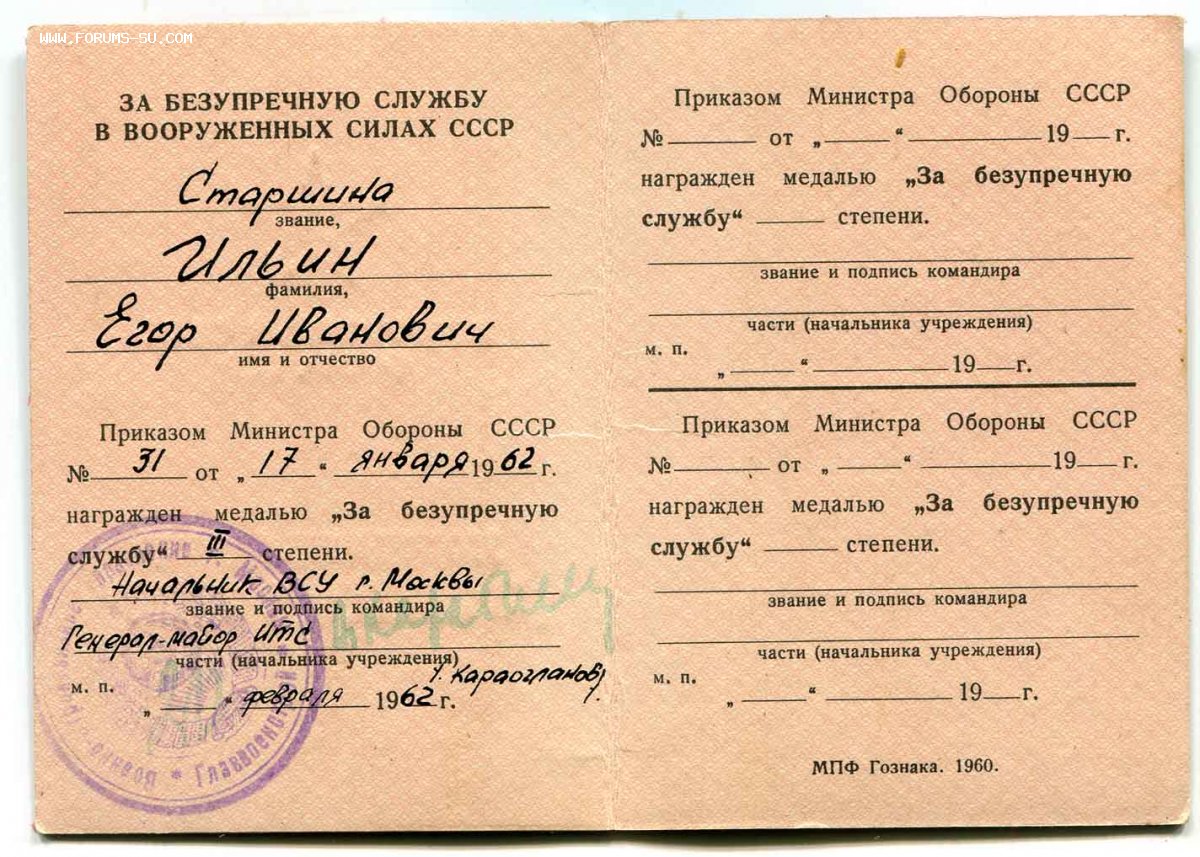 WWW.FORUMS-SU.COM
ЗА БЕЗУПРЕЧНУЮ СЛУЖБУ
В ВООРУЖЕННЫХ СИЛАХ СССР
Старшина
звание,
Ильин
фамилия,
Егор Иванович
имя и отчество
Приказом Министра Обороны СССР
№ 31 от „17“ января 1962 г.
награжден медалью „За безупречную
службу“ III степени.
Начальник ВСУ г. Москвы
звание и подпись командира
Генерал-майор ИТС
части (начальника учреждения)
/. Караогланов/
м. п.
„ “ февраля 1962 г.
Главвоенстрой * Военно
Приказом Министра Обороны СССР
№ от „ “ 19 г.
награжден медалью „За безупречную
службу“ степени.
звание и подпись командира
части (начальника учреждения)
м. п.
„ “ 19 г.
Приказом Министра Обороны СССР
№ от „ “ 19 г.
награжден медалью „За безупречную
службу“ степени.
звание и подпись командира
части (начальника учреждения)
м. п.
„ “ 19 г.
МПФ Гознака. 1960.